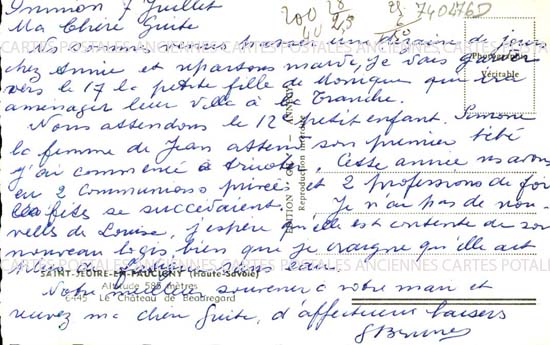 7 Juillet
Ma Chère Guite
200 28 25 740276D
40 2,5
Nous sommes venus passer une dizaine de jours
chez Annie et repartons mardi, je vais garder
vers le 17 la petite fille de Monique qui ira
aménager leur villa à la Tranche.
Nous attendons le 12e petit enfant. Simone
la femme de Jean attend son premier bébé
j'ai commencé à tricoter. Cette année, ns avons
eu 2 communions privées et 2 professions de foi
les fêtes se succédaient. Je n'ai pas de nou-
velle de Louise, j'espère qu'elle est contente de son
nouveau logis, bien que je craigne qu'elle ait
sans eau.
Notre meilleur souvenir à votre mari et
recevez ma chère Guite, d'affectueux baisers
Photographie
Véritable
ÉDITION GARDET — ANNECY
Reproduction interdite
SAINT-JEOIRE-EN-FAUCIGNY (Haute-Savoie)
Altitude 588 mètres
6445 Le Château de Beauregard
CARTES POSTALES ANCIENNES CARTES POSTALES ANCIENNES CARTES POSTALES